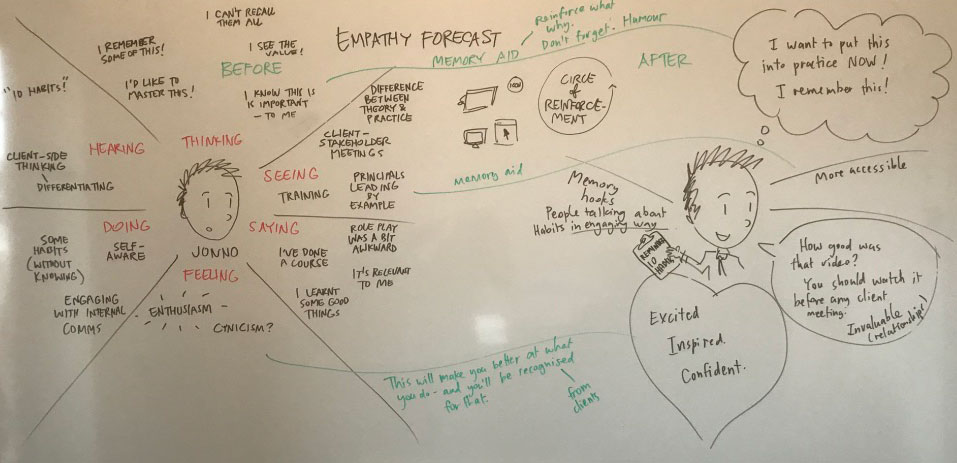 EMPATHY FORECAST
BEFORE
MEMORY AID
Reinforce what
why.
Don't forget.
Humour
AFTER
I CAN'T RECALL
THEM ALL
I REMEMBER
SOME OF THIS!
I SEE THE
VALUE!
"10 HABITS!"
I'D LIKE TO
MASTER THIS!
I KNOW THIS IS
IS IMPORTANT
- TO ME
THINKING
HEARING
CLIENT-SIDE
THINKING
DIFFERENTIATING
SEEING
DIFFERENCE
BETWEEN
THEORY &
PRACTICE
CLIENT-
STAKEHOLDER
MEETINGS
TRAINING
PRINCIPALS
LEADING
BY
EXAMPLE
DOING
SOME
HABITS
(WITHOUT
KNOWING)
SELF-
AWARE
ENGAGING
WITH INTERNAL
COMMS
JONNO
SAYING
ROLE PLAY
WAS A BIT
AWKWARD
I'VE DONE
A COURSE
IT'S RELEVANT
TO ME
I LEARNT
SOME GOOD
THINGS
FEELING
ENTHUSIASM
CYNICISM?
CIRCLE
of
REINFORCE-
MENT
Memory aid
Memory
hooks
People talking about
Habits in engaging way
REMEMBER
10
HABITS
I want to put this
into practice NOW!
I remember this!
More accessible
How good was
that video?
You should watch it
before any client
meeting.
Invaluable
(relationships)
Excited
Inspired.
Confident.
This will make you better at what
you do - and you'll be recognised
for that.
from
clients